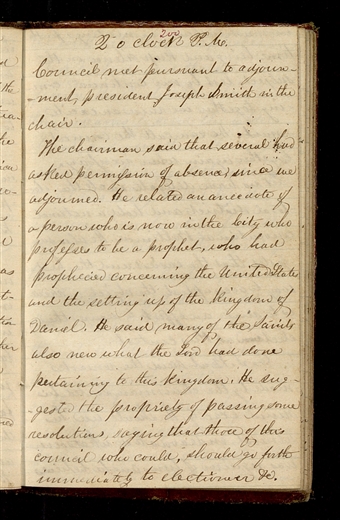 200
2 o clock P. M.
Council met pursuant to adjourn-
-ment, president Joseph Smith in the
chair.
The chairman said that several had
asked permission of absence since we
adjourned. He related an anecdote of
a person who is now in the City who
professes to be a prophet, who had
prophecied concerning the United States
and the setting up of the Kingdom of
Daniel. He said many of the Saints
also new what the Lord had done
pertaining to this Kingdom. He sug-
gested the propriety of passing some
resolutions, saying that those of this
council who could, should go forth
immediately to electioneer &c.